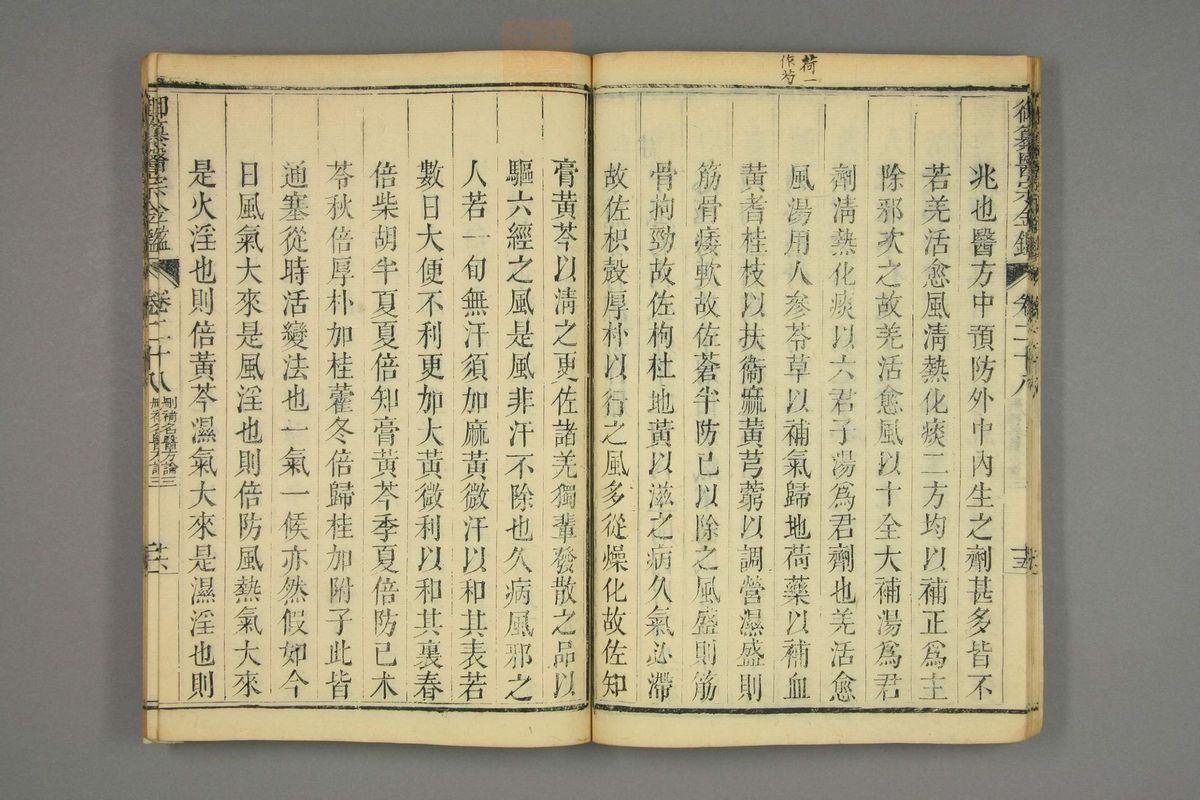 荷一
作芍
御纂醫宗金鑑 卷二十八
兆也醫方中預防外中內生之劑甚多皆不
若羌活愈風淸熱化痰二方均以補正爲主
除邪次之故羌活愈風以十全大補湯爲君
劑淸熱化痰以六君子湯爲君劑也羌活愈
風湯用人參苓草以補氣歸地荷藥以補血
黃耆桂枝以扶衞麻黃芎藭以調營濕盛則
筋骨痿軟故佐蒼半防已以除之風盛則筋
骨拘勁故佐枸杜地黃以滋之病久氣必滯
故佐枳殼厚朴以行之風多從燥化故佐知
膏黃芩以淸之更佐諸羌獨輩發散之品以
驅六經之風是風非汗不除也久病風邪之
人若一旬無汗須加麻黃微汗以和其表若
數日大便不利更加大黃微利以和其裏春
倍柴胡半夏夏倍知膏黃芩季夏倍防已木
苓秋倍厚朴加桂藿冬倍歸桂加附子此皆
通塞從時活變法也一氣一候亦然假如今
日風氣大來是風淫也則倍防風熱氣大來
是火淫也則倍黃芩濕氣大來是濕淫也則
御纂醫宗金鑑 卷二十八 刪補名醫方論三